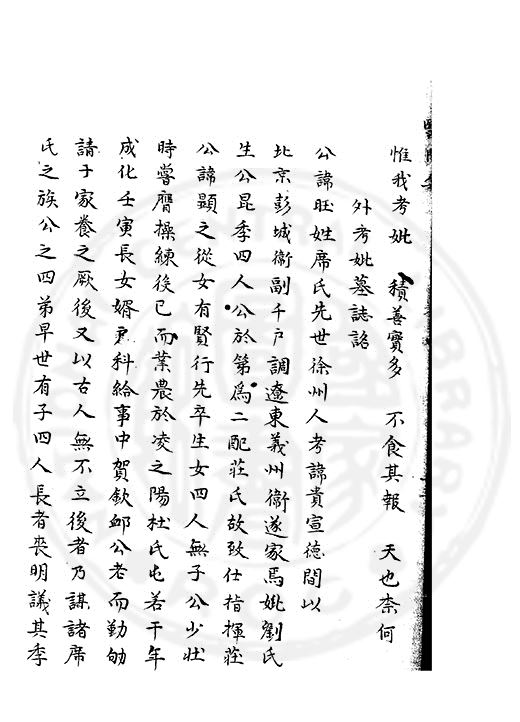 惟我考妣　積善實多　不食其報　天也柰何
外考妣墓誌銘
公諱旺姓席氏先世徐州人考諱貴宣德間以
北京彭城衛副千戶調遼東義州衛遂家焉妣劉氏
生公昆季四人公於第爲二配莊氏故致仕指揮莊
公諱顕之從女有賢行先卒生女四人無子公少壯
時嘗膺操練後已而業農於凌之陽杜氏屯若干年
成化壬寅長女婿戶科給事中賀欽邺公老而勤劬
請于家養之厥後又以古人無不立後者乃謀諸席
氏之族公之四弟早世有子四人長者喪明議其季